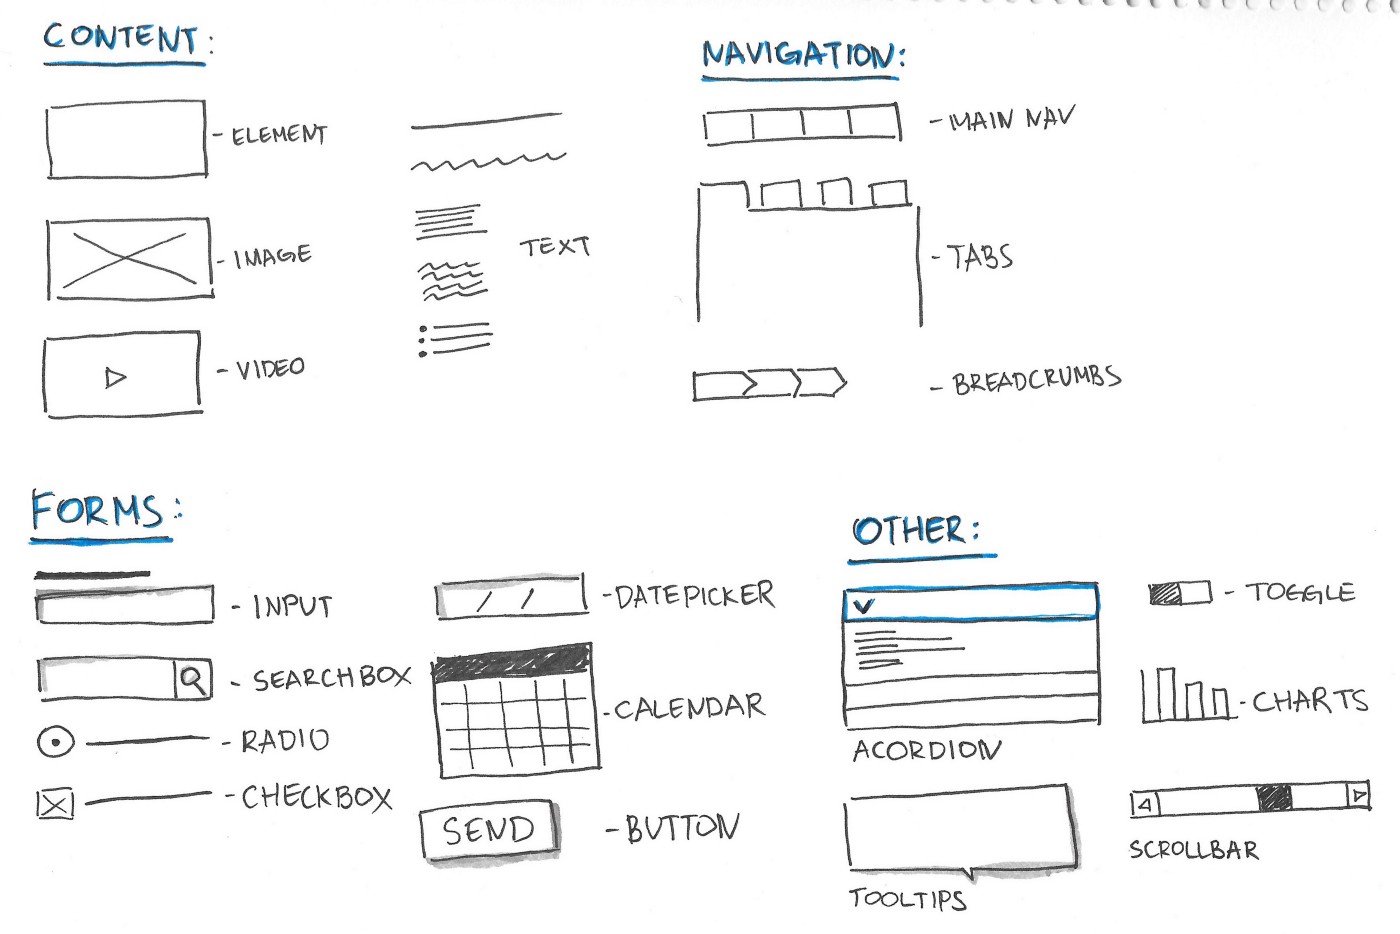 CONTENT:
- ELEMENT
- IMAGE
- VIDEO
TEXT
NAVIGATION:
- MAIN NAV
- TABS
- BREADCRUMBS
FORMS:
- INPUT
- SEARCHBOX
- RADIO
- CHECKBOX
- DATEPICKER
- CALENDAR
SEND
- BUTTON
OTHER:
ACORDION
TOOLTIPS
- TOGGLE
- CHARTS
SCROLLBAR